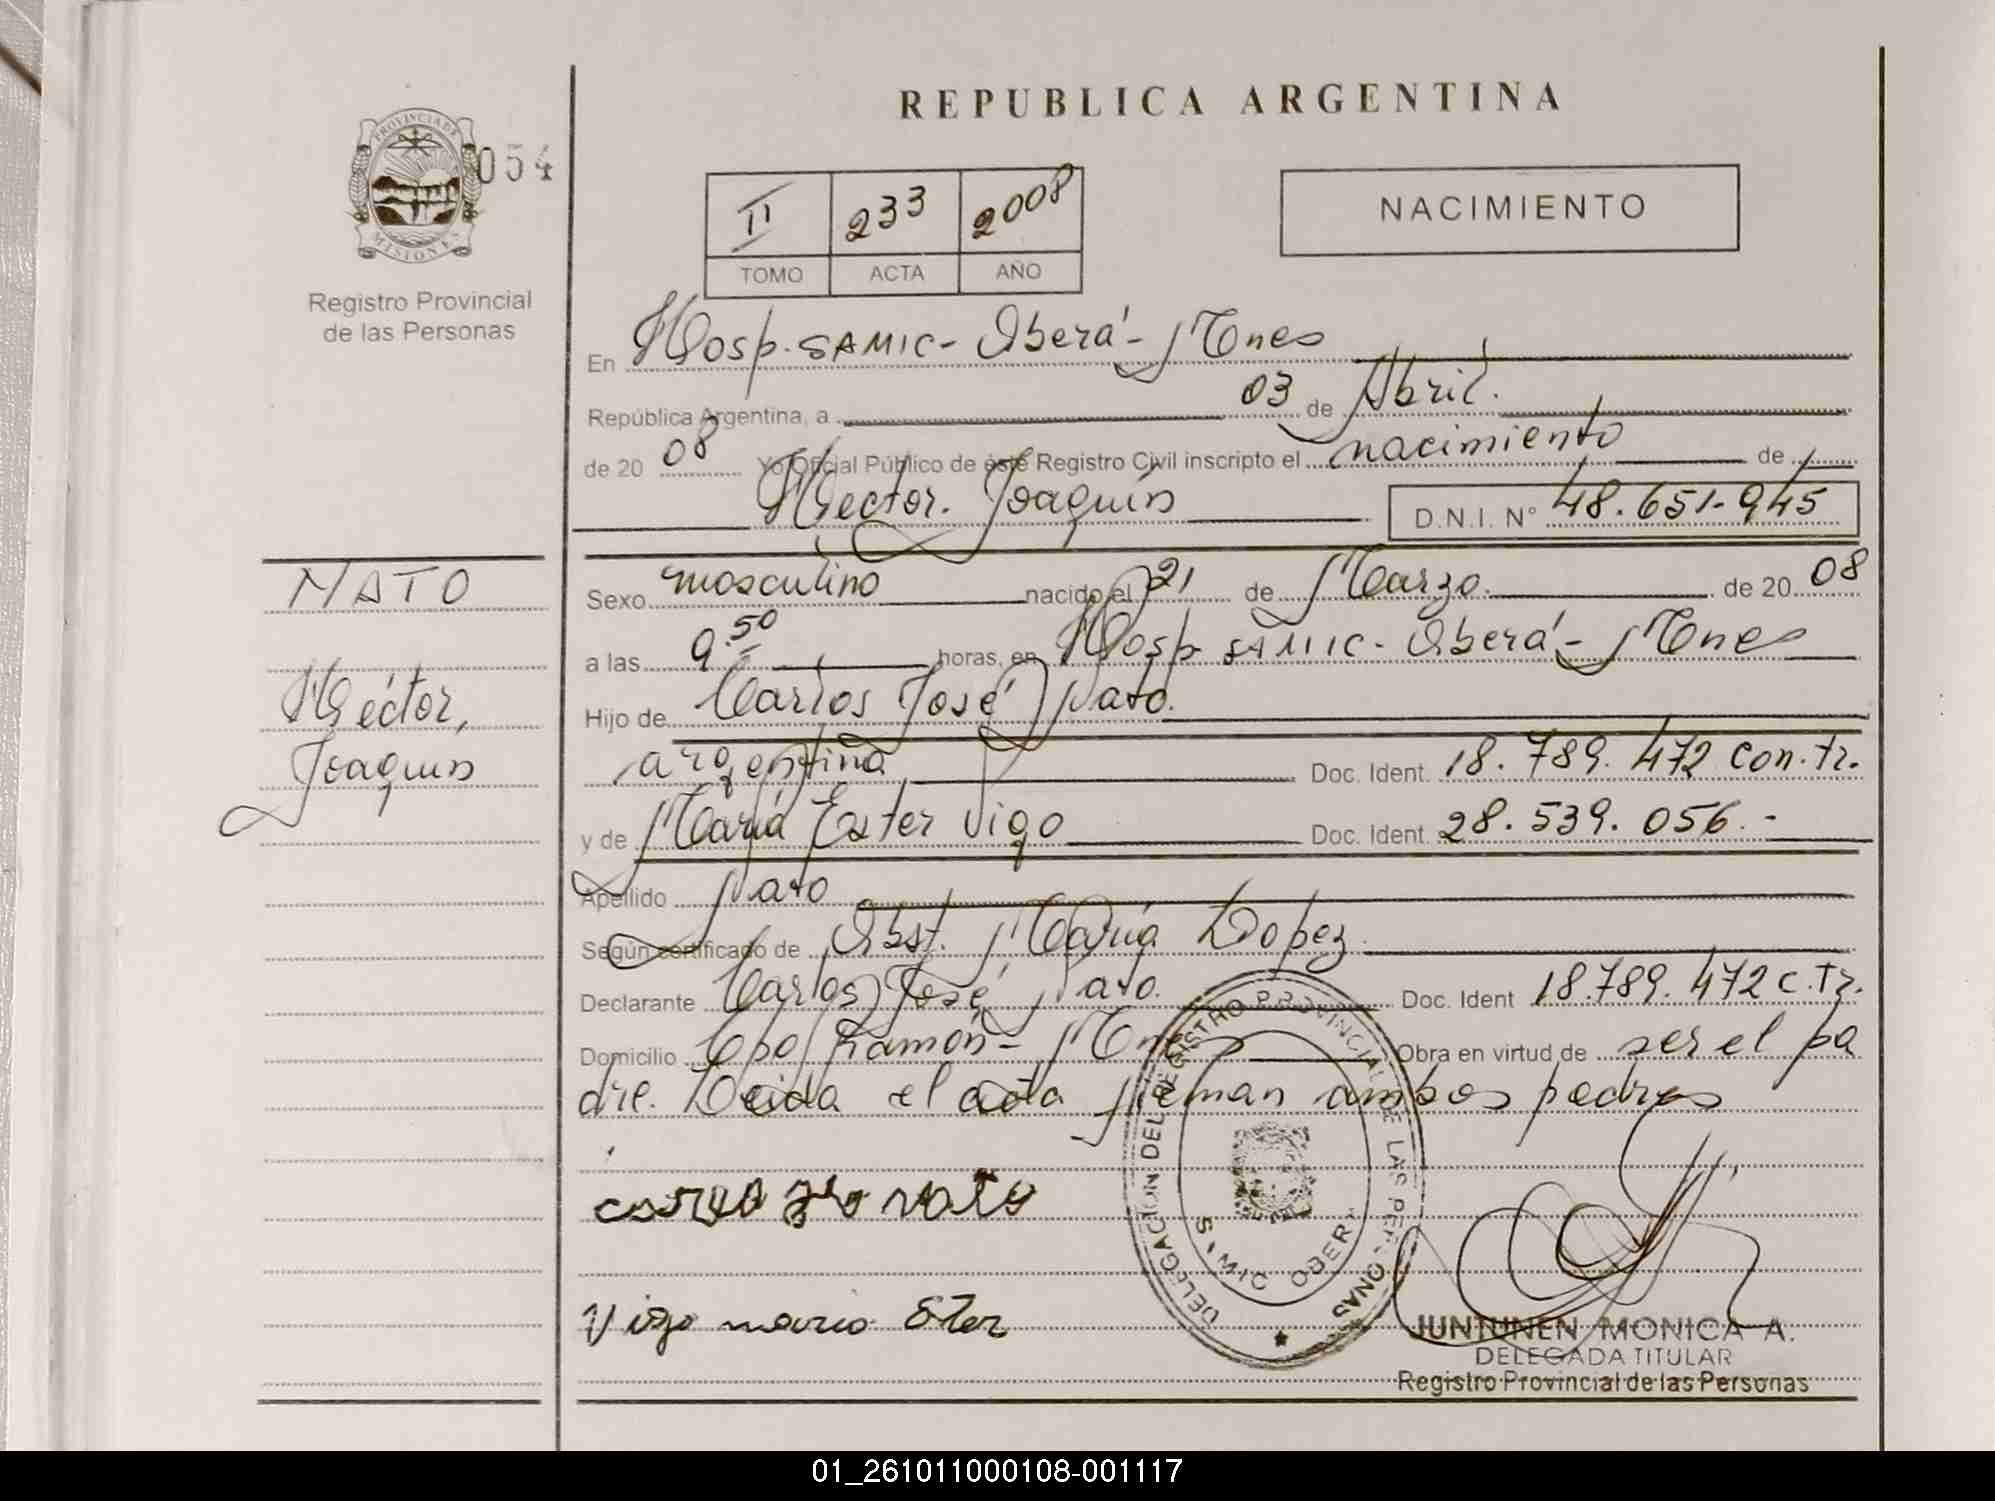 REPUBLICA ARGENTINA
PROVINCIA DE
MISIONES
054
Registro Provincial
de las Personas
II 233 2008
TOMO ACTA AÑO
NACIMIENTO
En Hosp. SAMIC - Oberá - Mnes
República Argentina, a 03 de Abril.
de 20 08 Yo Oficial Público de éste Registro Civil inscripto el nacimiento de
Hector. Joaquín D.N.I. N° 48.651.945
MATO
Héctor,
Joaquín
Sexo masculino nacido el 21 de Marzo. de 20 08
a las 9.50 horas, en Hosp SAMIC - Oberá - Mnes
Hijo de Carlos José Nato.
argentina Doc. Ident. 18.789.472 con.tr.
y de María Ester Vigo Doc. Ident. 28.539.056.-
Apellido Nato
Según certificado de Obst. María Lopez.
Declarante Carlos José Nato. Doc. Ident 18.789.472 c.tr.
Domicilio Cpo Ramón - Mnes Obra en virtud de ser el pa
dre. Leida el acta firman ambos padres
Vigo maria Ster
DELEGACION DEL REGISTRO PROVINCIAL DE LAS PERSONAS
SAMIC OBERA
JUNTUNEN MONICA A.
DELEGADA TITULAR
Registro Provincial de las Personas
01_261011000108-001117